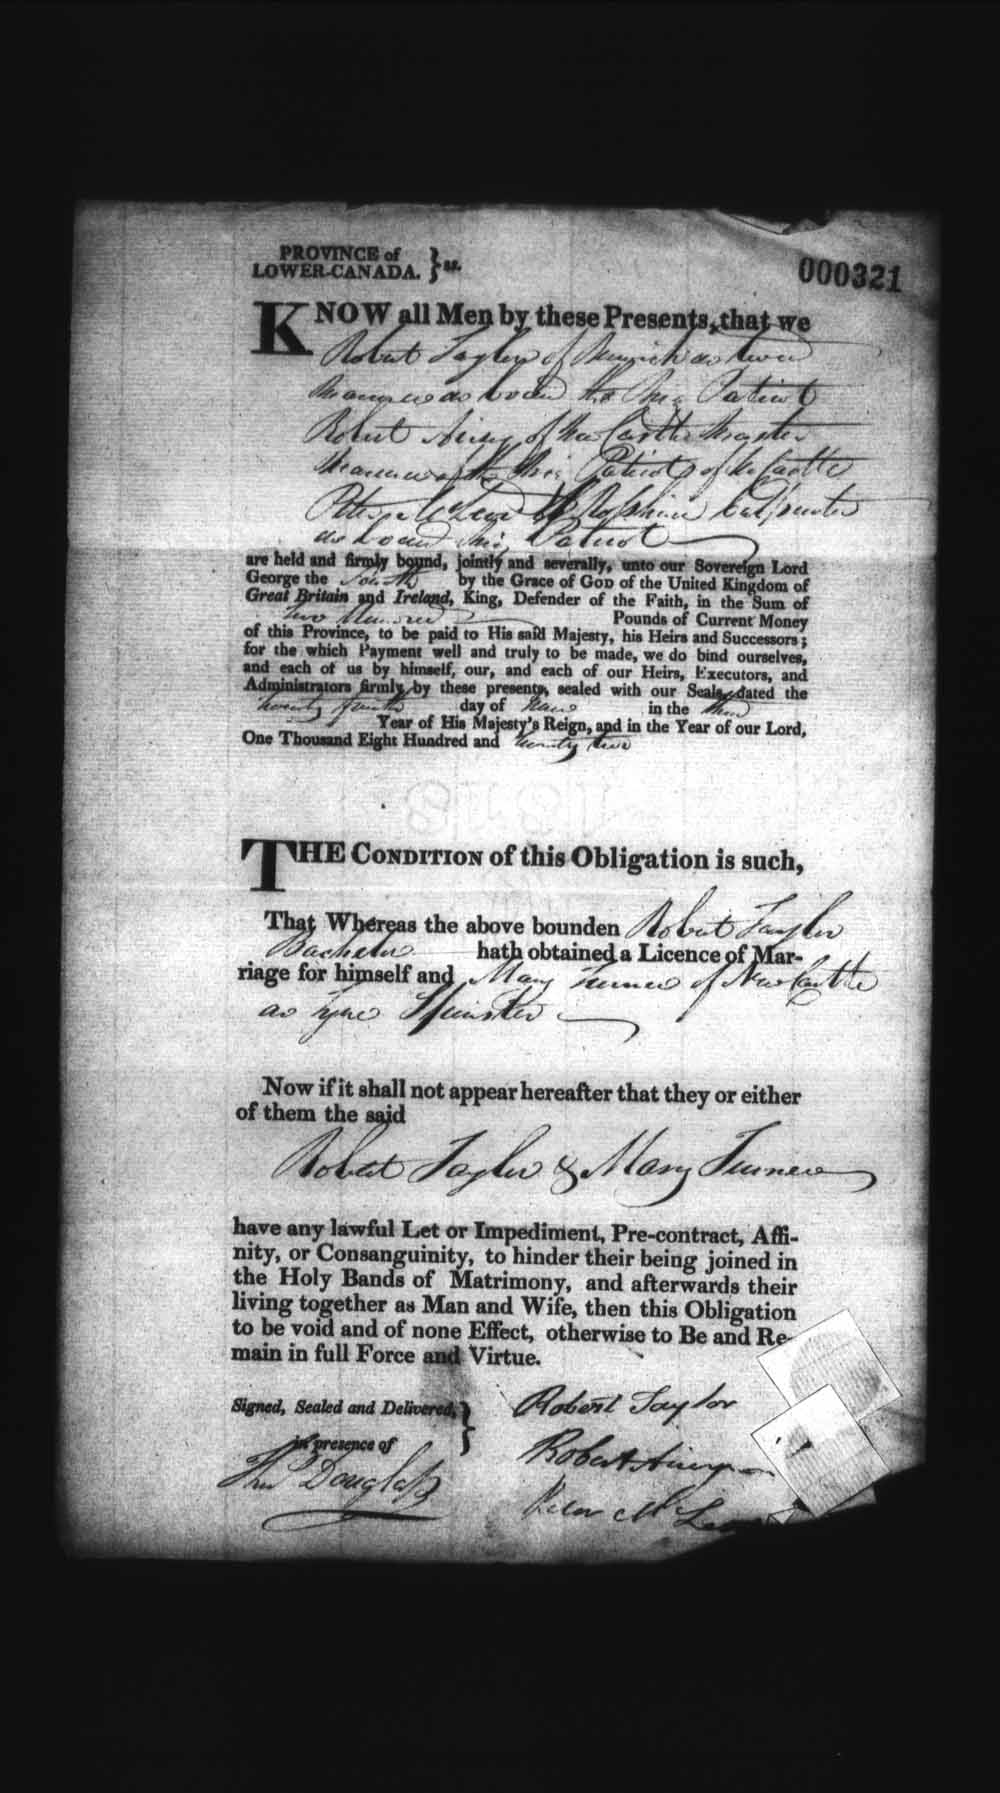 PROVINCE of
LOWER-CANADA. } ss.
000321
KNOW all Men by these Presents, that we
Robert Taylor of Berwick as tweed
Mariner on board the Brig Patriot
Robert Airey of New Castle Master
Mariner of the Brig Patriot of N Castle
Peter McLean of Carpenter
on board Brig Patriot
are held and firmly bound, jointly and severally, unto our Sovereign Lord
George the Fourth by the Grace of GOD of the United Kingdom of
Great Britain and Ireland, King, Defender of the Faith, in the Sum of
Two Hundred Pounds of Current Money
of this Province, to be paid to His said Majesty, his Heirs and Successors;
for the which Payment well and truly to be made, we do bind ourselves,
and each of us by himself, our, and each of our Heirs, Executors, and
Administrators firmly by these presents, sealed with our Seals, dated the
twenty fourth day of in the third
Year of His Majesty's Reign, and in the Year of our Lord,
One Thousand Eight Hundred and twenty two
1818
THE CONDITION of this Obligation is such,
That Whereas the above bounden Robert Taylor
Bachelor hath obtained a Licence of Mar-
riage for himself and Mary Turner of New Castle
as Tyne Spinster
Now if it shall not appear hereafter that they or either
of them the said
Robert Taylor & Mary Turner
have any lawful Let or Impediment, Pre-contract, Affi-
nity, or Consanguinity, to hinder their being joined in
the Holy Bands of Matrimony, and afterwards their
living together as Man and Wife, then this Obligation
to be void and of none Effect, otherwise to Be and Re-
main in full Force and Virtue.
Signed, Sealed and Delivered, }
in presence of
Thos Douglass
Robert Taylor
Robert Airey
Peter McLean